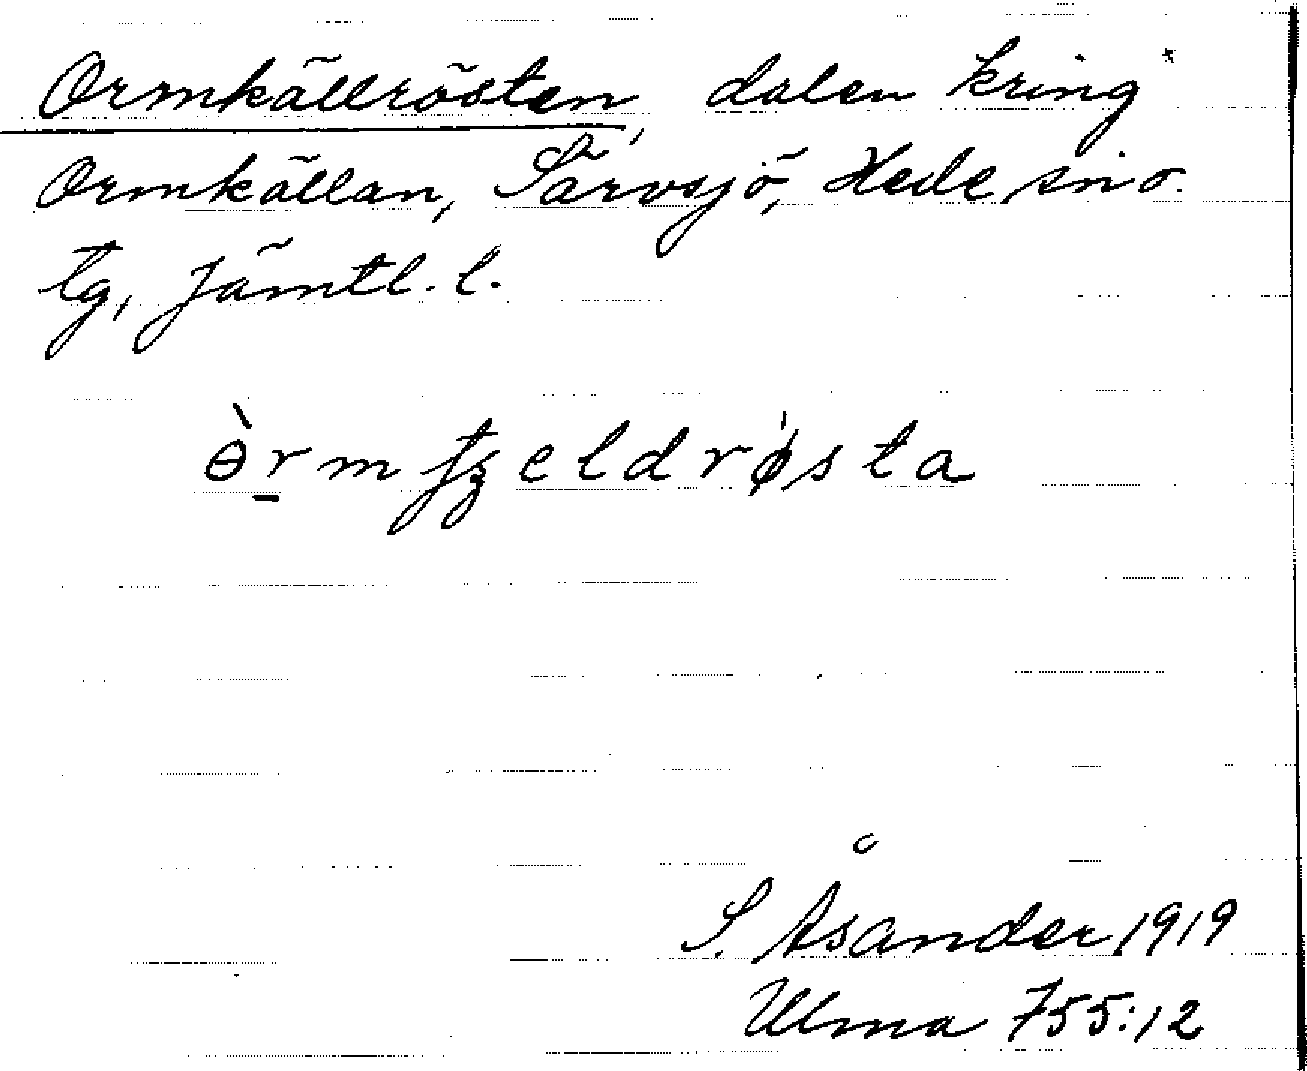 Ormkällrösten, dalen kring
Ormkällan, Särvsjö, Hede sn o.
tg, Jämtl. l.
ɵ̀r̲mfʒeldrø̍sta
S. Åsander 1919
Ulma 755:12